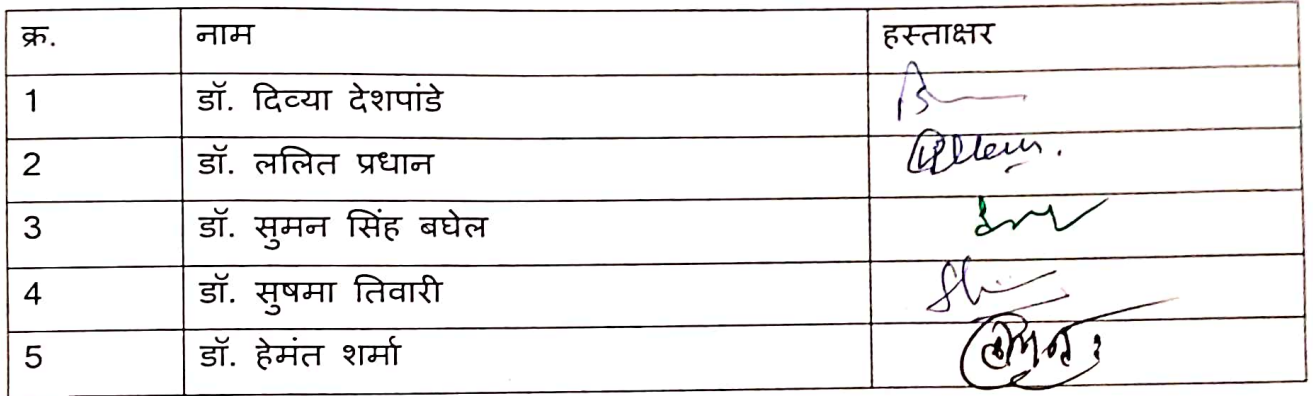 क्र. नाम हस्ताक्षर
1 डॉ. दिव्या देशपांडे
2 डॉ. ललित प्रधान
3 डॉ. सुमन सिंह बघेल
4 डॉ. सुषमा तिवारी
5 डॉ. हेमंत शर्मा